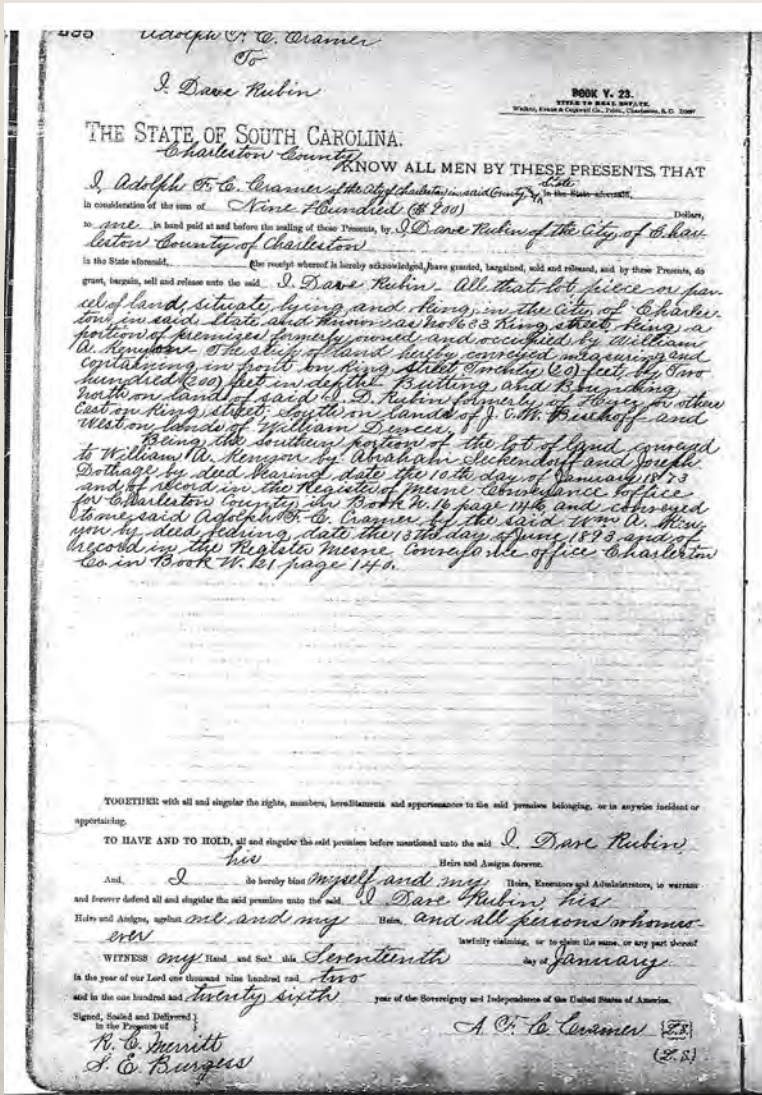 Adolph F. C. Cramer
To
I. Dave Rubin
BOOK Y. 23.
TITLE TO REAL ESTATE.
Walker, Evans & Cogswell Co., Print., Charleston, S. C.
THE STATE OF SOUTH CAROLINA.
Charleston County
KNOW ALL MEN BY THESE PRESENTS, THAT
I, Adolph F. C. Cramer of the City of Charleston in said County & State in the State aforesaid,
in consideration of the sum of Nine Hundred ($900) Dollars,
to me in hand paid at and before the sealing of these Presents, by I. Dave Rubin of the City, of Char-
leston County of Charleston
in the State aforesaid, (the receipt whereof is hereby acknowledged,) have granted, bargained, sold and released, and by these Presents, do
grant, bargain, sell and release unto the said I. Dave Rubin. All that lot piece or par-
cel of land, situate, lying and being, in the City of Charles-
ton, in said State and known as No 633 King street, being a
portion of premises formerly owned and occupied by William
A. Kenyon. The strip of land hereby conveyed measuring and
containing in front on King street Twenty (20) feet by Two
hundred (200) feet in depth. Butting and Bounding
North on land of said I. D. Rubin formerly of or others
East on King street. South on lands of J. C. W. Bischoff and
West on lands of William
Being the southern portion of the lot of land conveyed
to William A. Kenyon by Abraham Seckendorf and Joseph
Dothage by deed bearing date the 10th day of January 1873
and of record in the Register of Mesne Conveyance office
for Charleston County in Book N. 16 page 146, and conveyed
to me, said Adolph F. C. Cramer by the said Wm A. Ken-
yon by deed bearing date the 13th day of June 1893 and of
record in the Register Mesne Conveyance office Charleston
Co in Book W. 21 page 140.
TOGETHER with all and singular the rights, members, hereditaments and appurtenances to the said premises belonging, or in anywise incident or
appertaining.
TO HAVE AND TO HOLD, all and singular the said premises before mentioned unto the said I. Dave Rubin
his Heirs and Assigns forever.
And, I do hereby bind myself and my Heirs, Executors and Administrators, to warrant
and forever defend all and singular the said premises unto the said I Dave Rubin, his
Heirs and Assigns, against me and my Heirs, and all persons whomso-
ever lawfully claiming, or to claim the same, or any part thereof
WITNESS my Hand and Seal this Seventeenth day of January
in the year of our Lord one thousand nine hundred and two
and in the one hundred and twenty sixth year of the Sovereignty and Independence of the United States of America.
Signed, Sealed and Delivered }
in the Presence of
A. F. C. Cramer {L.S.}
R. C. Merritt
(L.S)
S. E. Burgess